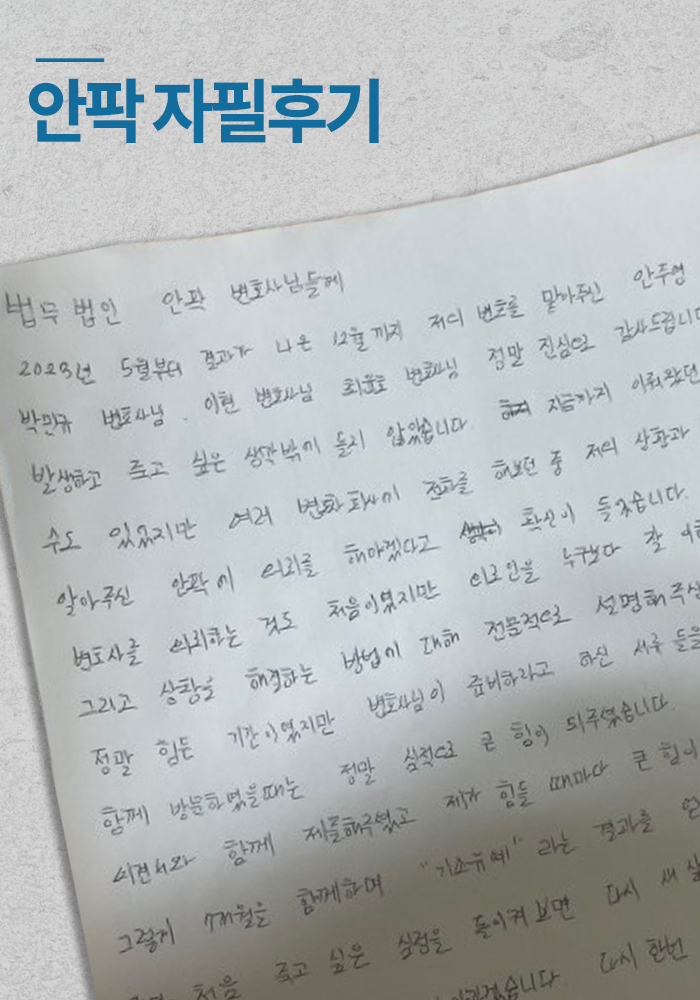 안팍 자필후기
법무법인 안팍 변호사님들께
2023년 5월부터 결과가 나온 12월까지 저의 변호를 맡아주신 안주영
박민규 변호사님. 이현 변호사님 최윤호 변호사님 정말 진심으로 감사드립니다
발생하고 죽고 싶은 생각밖에 들지 않았습니다. 지금까지 이뤄왔던
수도 있었지만 여러 변호사 회사에 전화를 해보던 중 저의 상황과
알아주신 안팍에 의뢰를 해야겠다고 확신이 들었습니다.
변호사를 의뢰하는 것도 처음이였지만 의뢰인을 누구보다 잘
그리고 상황을 해결하는 방법에 대해 전문적으로 설명해주신
정말 힘든 기간이였지만 변호사님이 준비하라고 하신 서류들을
함께 방문하였을때는 정말 심적으로 큰 힘이 되주셨습니다.
의견서와 함께 제출해주셨고 제가 힘들 때마다 큰 힘이
그렇게 7개월을 함께하며 "기소유예" 라는 결과를
처음 죽고 싶은 심정을 돌이켜보면 다시 새
다시 한번